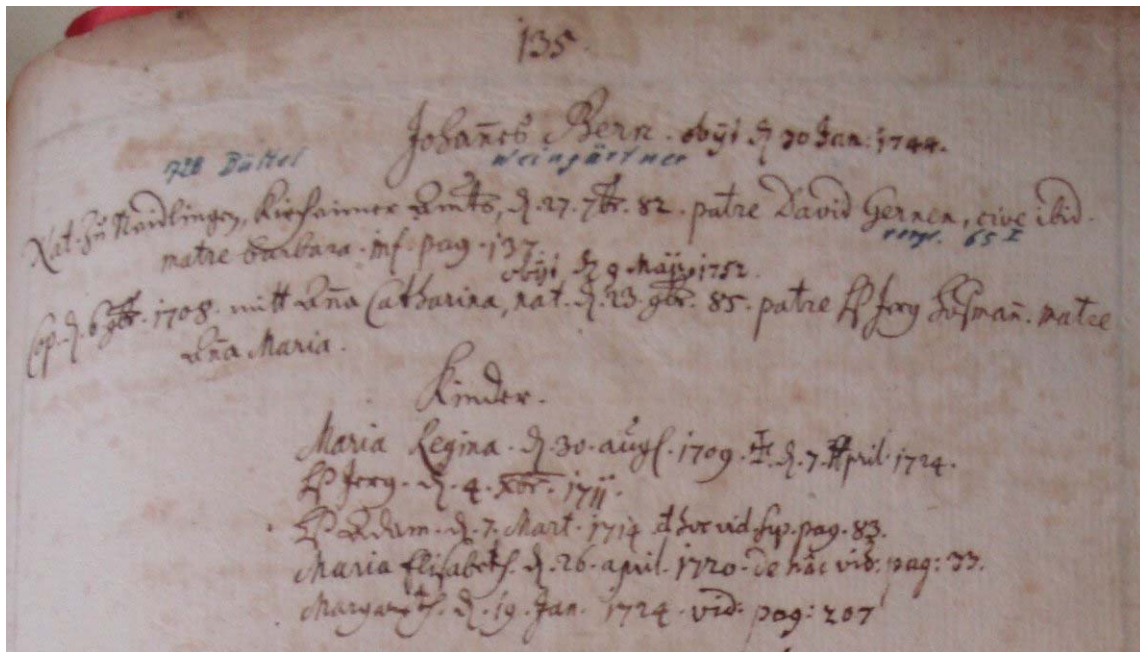 135.
Johañes Bern. obÿt d. 30 Jan: 1744.
728 Büttel Weingärtner
Nat. zu Neidlingen, Kircheimer Amts, d. 27. 7br. 82. patre David Gernen, cive ibid.
65 I
matre barbara. inf. pag. 137
obÿt d. 9 Maÿ 1752.
Cop. d. 6 9br. 1708. mitt Aña Catharina, nat. d. 23. 9br. 85. patre Hß Jerg mañ. matre
Aña Maria.
Kinder.
Maria Regina. d. 30. aug. 1709. d. 7. April. 1724.
Hß Jerg. d. 4. Xbr. 1711.
Hß Adam. d. 7. Mart. 1714 vid. pag. 83.
Maria Elisabeth. d. 26. april. 1720. de hac vid: pag: 33.
Margareth. d. 19. Jan. 1724. vid: pag: 207